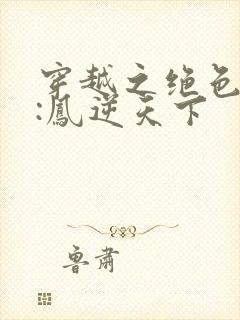 穿越之绝色
:凰逆天下
鲁肃